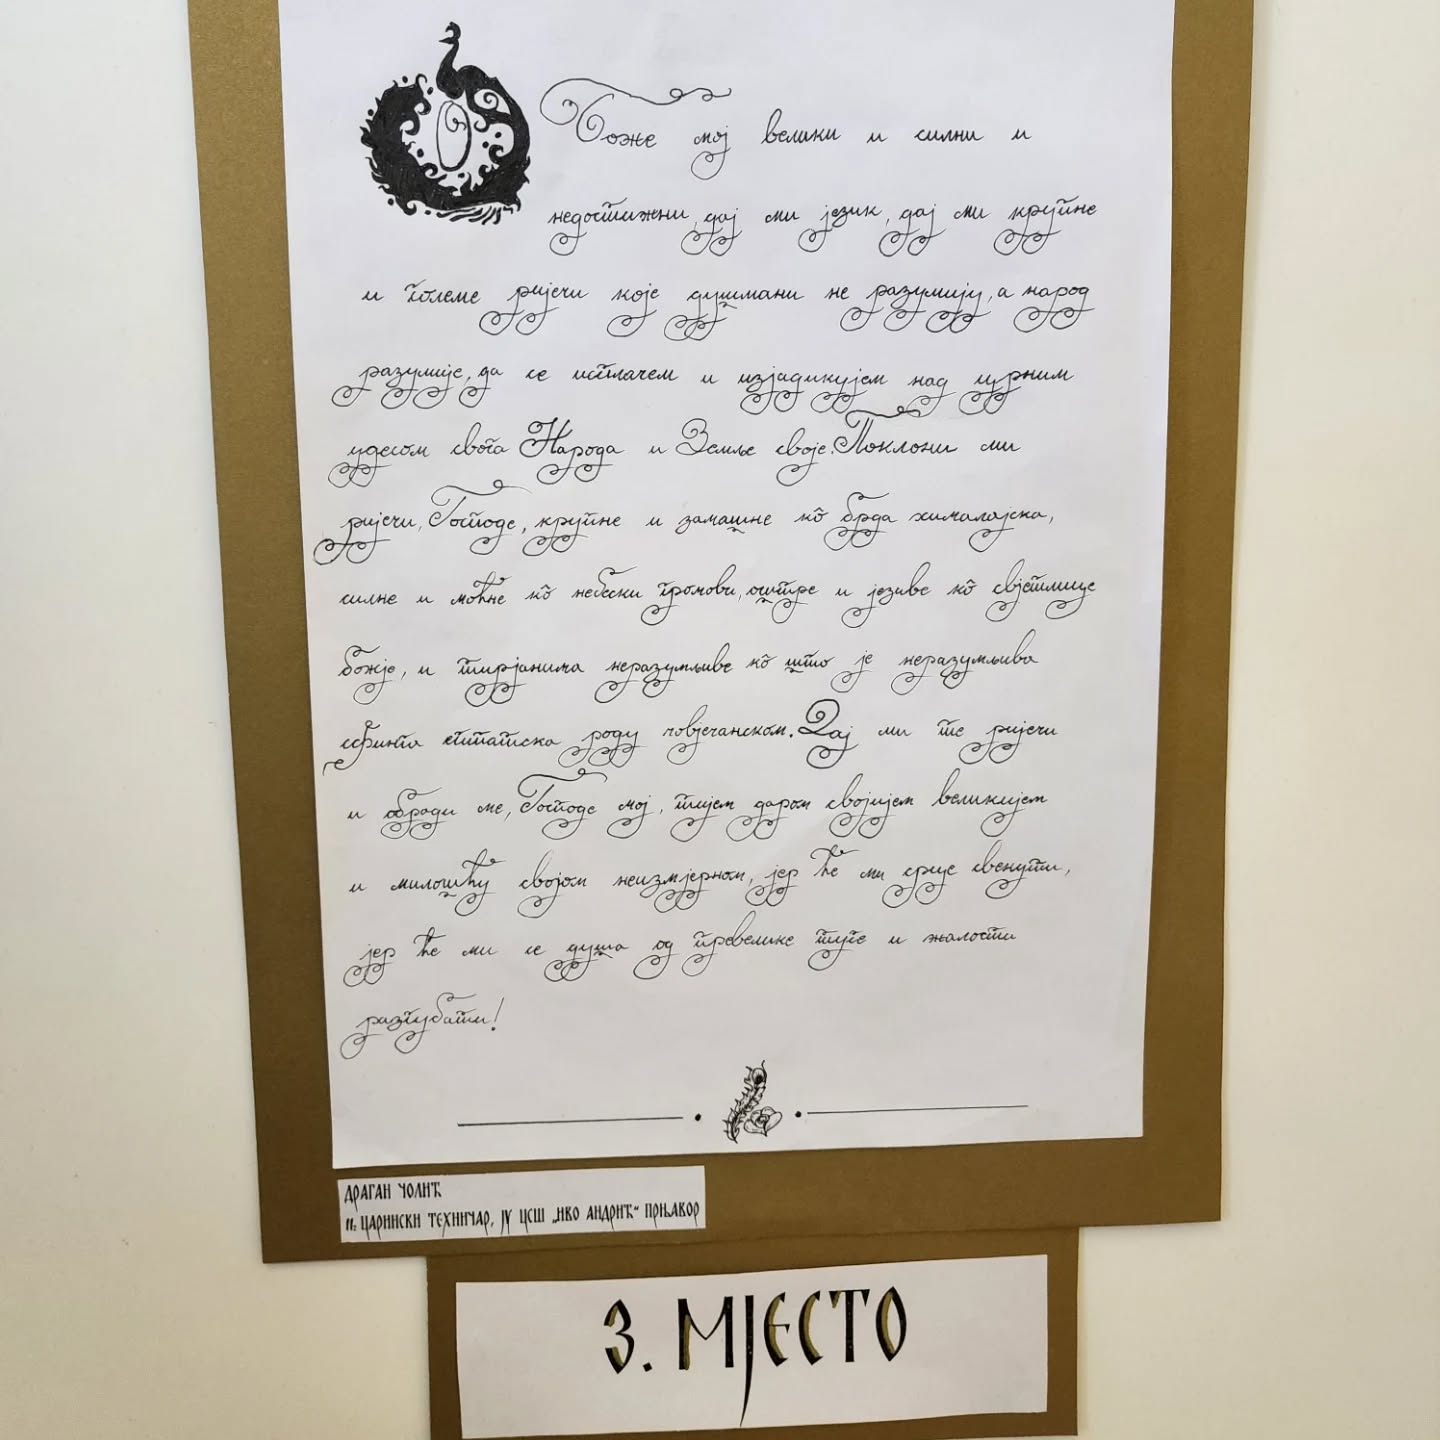 О Боже мој велики и силни и
недостижни, дај ми језик, дај ми крупне
и големе ријечи које душмани не разумију, а народ
разумије, да се исплачем и изјадикујем над црним
удесом свога Народа и Земље своје. Поклони ми
ријечи, Господе, крупне и замашне кô брда хималајска,
силне и моћне кô небески громови, оштре и језиве кô свјетлице
божје, и тирјанима неразумљиве кô што је неразумљива
сфинга египатска роду човјечанском. Дај ми те ријечи
и обради ме, Господе мој, тијем даром својијем великијем
и милошћу својом неизмјерном, јер ће ми срце свенути,
јер ће ми се душа од превелике туге и жалости
разгубати!
ДРАГАН ЧОЛИЋ
II₂ ЦАРИНСКИ ТЕХНИЧАР, ЈУ ЦСШ „ИВО АНДРИЋ“ ПРЊАВОР
3. МЈЕСТО